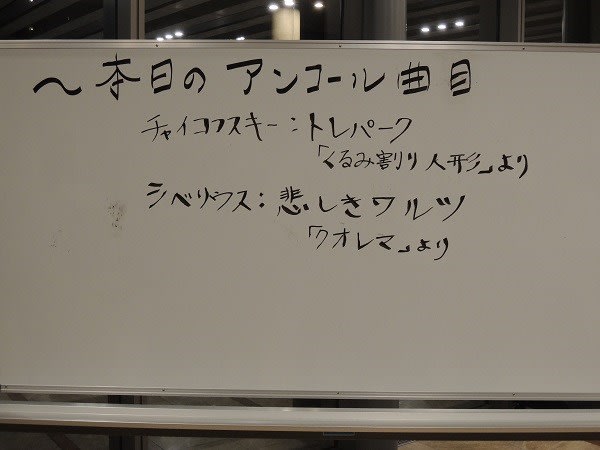 ～本日のアンコール曲目
チャイコフスキー：トレパーク
「くるみ割り人形」より
シベリウス：悲しきワルツ
「クオレマ」より